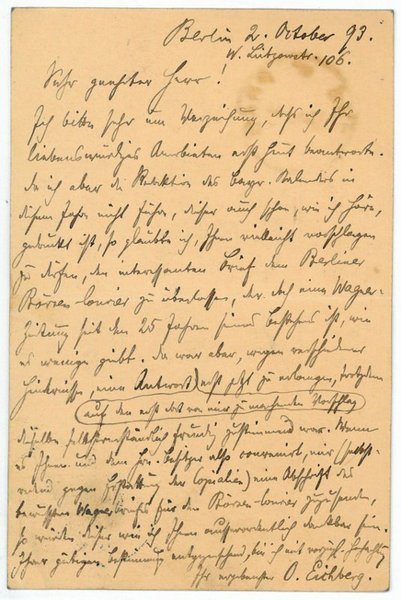 Berlin 2. October 93.
W. Lützowstr. 106.
Sehr geehrter Herr!
Ich bitte sehr um Verzeihung, daß ich Ihr
liebenswürdiges Anerbieten erst heut beantworte.
Da ich aber die Redaktion des bayr. Kalenders in
diesem Jahre nicht führe, dieser auch schon, wie ich höre,
gedruckt ist, so glaubte ich, Ihnen vielleicht vorschlagen
zu dürfen, den interessanten Brief dem Berliner
Börsen Courier zu überlassen, der doch eine Wagner-
Zeitung seit den 25 Jahren seines Bestehens ist, wie
es wenige giebt. Da war aber, wegen verschiedener
Hindernisse, eine Antwort erst jetzt zu erlangen, trotzdem
auf den erst dort von mir zu machenden Vorschlag
dieselbe selbstverständlich freudig zustimmend war. Wenn
es Ihnen und dem Hrn. Besitzer also convenirt, mir (selbst-
redend gegen Erstattung der Copialien) eine Abschrift des
bewußten Wagnerbriefs für den Börsen-Courier zuzusenden,
so würden dieser wie ich Ihnen außerordentlich dankbar sein.
Ihrer gütigen Bestimmung entgegensehend, bin ich mit vorzügl. Hochachtung
Ihr ergebenster O. Eichberg.